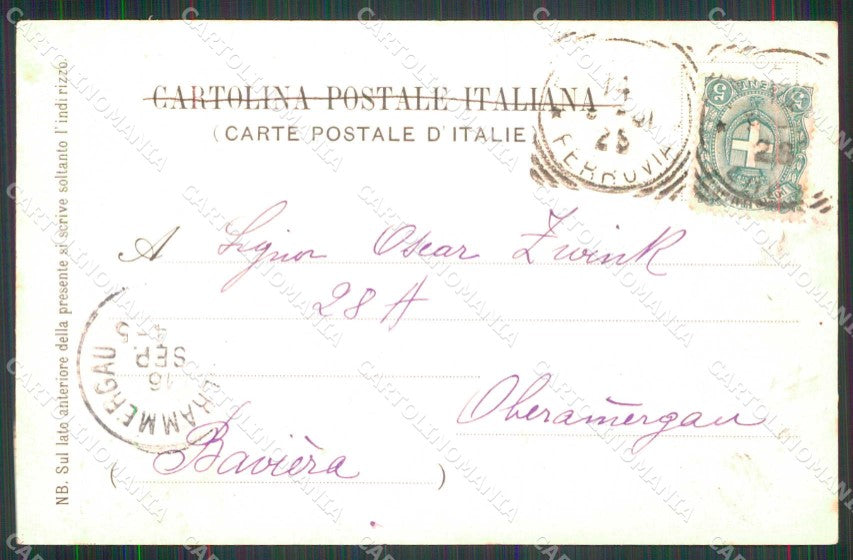 CARTOLINA POSTALE ITALIANA
(CARTE POSTALE D'ITALIE)
FERROVIA
28
5
5
28
A Signor Oscar Zwink
28 A
Oberam̄ergau
(Bavièra)
OBERAMMERGAU
16
SEP.
NB. Sul lato anteriore della presente si scrive soltanto l'indirizzo.
CARTOLINOMANIA